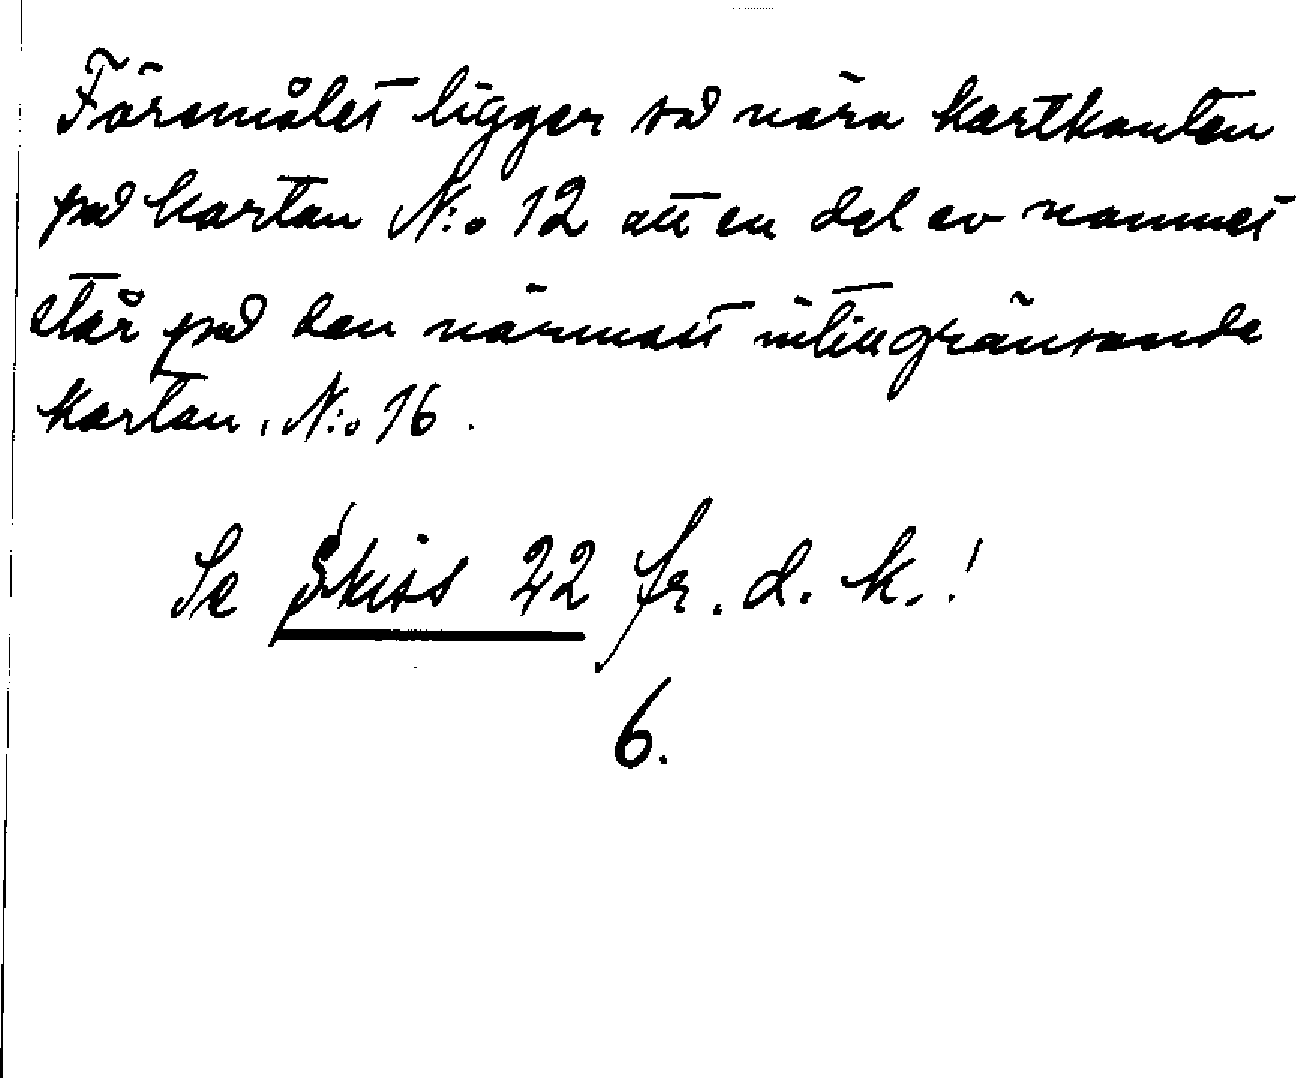 Föremålet ligger så nära kartkanten
på kartan N:o 12 att en del av namnet
står på den närmast intill gränsande
kartan, N:o 16.
Se Skiss 22 fr. d. k.!
6.